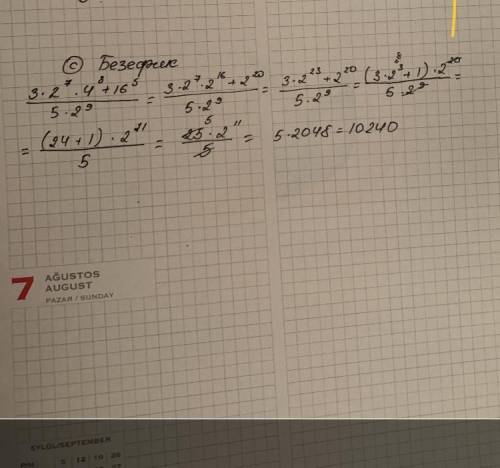 © Безефник
3·2⁷·4⁸+16⁵ / 5·2⁹ = 3·2⁷·2¹⁶+2²⁰ / 5·2⁹ = 3·2²³+2²⁰ / 5·2⁹ = (3·2³+1)·2²⁰ / 5·2⁹ =
= (24+1)·2¹¹ / 5 = 25·2¹¹ / 5 = 5·2048=10240
7 AĞUSTOS
AUGUST
PAZAR / SUNDAY
EYLÜL/SEPTEMBER